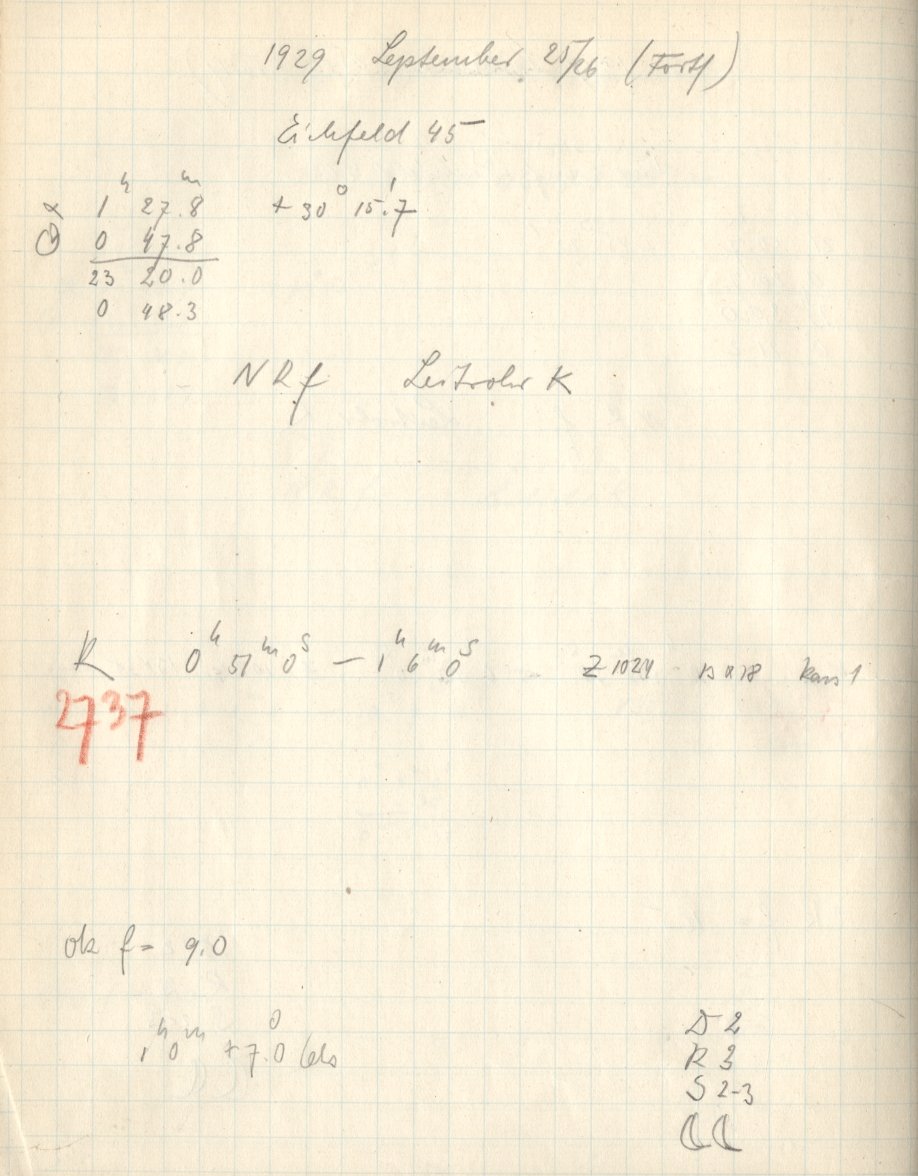 1929 September 25/26 (Forts)
Eichfeld 45
h m
α 1 27.8 + 30° 15'.7
☉ 0 47.8
23 20.0
0 48.3
NRf Leitrohr K
K 0h 51m 0s — 1h 6m 0s - Z 1024 13 x 18 Kass 1
2737
ok f = 9.0
1h 0m + 7.0°
D 2
R 3
S 2-3
☾☾